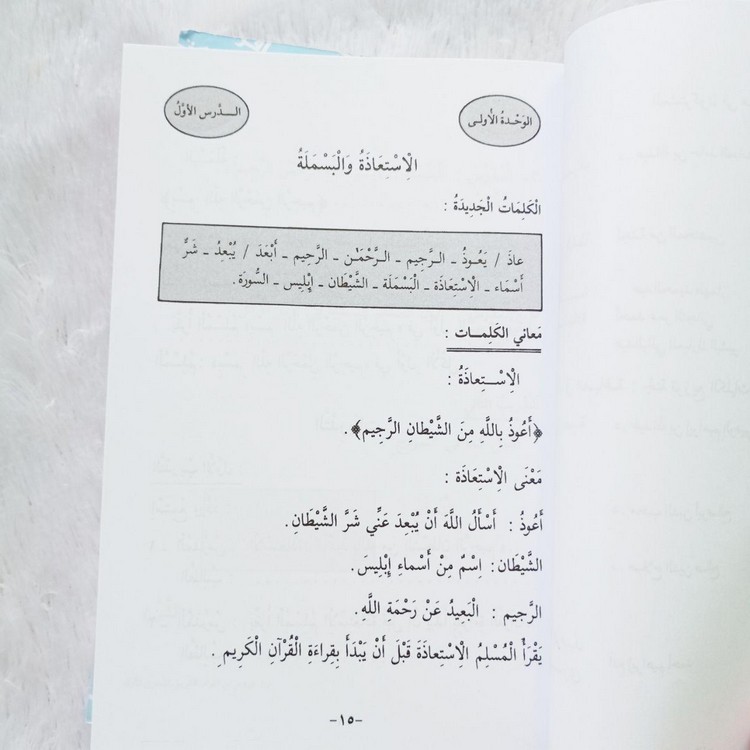 الوَحْدةُ الأُولـى
الـــدَّرس الأوَّلُ
الْاِسْتِعَاذَةُ وَالْبَسْمَلَةُ
الْكَلِمَاتُ الْجَدِيدَةُ :
عاذَ / يَعُـوذُ ـ الـرَّجِيم ـ الـرَّحْمَـٰن ـ الرَّحِيم ـ أَبْعَدَ / يُبْعِدُ ـ شَرٌّ
أَسْمَاء ـ الْاِسْتِعَاذَة ـ الْبَسْمَلَة ـ الشَّيْطَان ـ إِبْلِيس ـ السُّورَة.
مَعاني الكَلِمـــات :
الْاِسْــتِعاذَةُ :
﴿أَعُوذُ بِاللَّهِ مِنَ الشَّيْطانِ الرَّجِيم﴾.
مَعْنَى الْاِسْتِعَاذَة :
أَعُوذُ : أَسْأَلُ اللَّهَ أَنْ يُبْعِدَ عَنِّي شَرَّ الشَّيْطَانِ.
الشَّيْطَان: اِسْمٌ مِنْ أَسْماءِ إِبْلِيسَ.
الرَّجِيم : الْبَعِيدُ عَنْ رَحْمَةِ اللَّهِ.
يَقْرَأُ الْمُسْلِمُ الْاِسْتِعاذَةَ قَبْلَ أَنْ يَبْدَأَ بِقِراءَةِ الْقُرْآنِ الْكَرِيمِ .
-١٥-